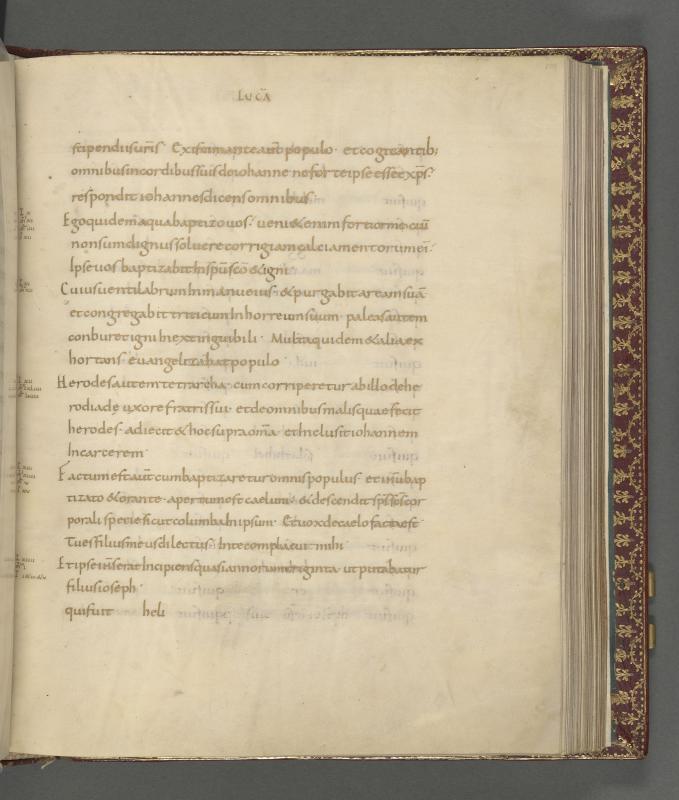 LUCĀ
stipendiis uris Existimante aut populo · et cogitantib;
omnibus in cordibus suis de iohanne ne forte ipse esset xps·
respondit iohannes dicens omnibus
Ego quidem aqua baptizo uos · ueni& enim fortior me cui
non sum dignus soluere corrigiam calciamentorum ei·
Ipse uos baptizabit in spu sco & igni
Cuius uentilabrum in manu eius · & purgabit aream suā
et congregabit triticum In horreum suum · paleas autem
conburet igni Inextinguibili · Multa quidem & alia ex
hortans · euangelizabat populo
Herodes autem tetrarcha · cum corriperetur ab illo de he
rodiade uxore fratris sui · et de omnibus malis quae fecit
herodes · adiecit & hoc supra oma · et Inclusit iohannem
In carcerem ·
Factum est aut cum baptizaretur omnis populus · et ihu bap
tizato & orante · apertum est caelum · & descendit sps scs cor
porali specie sicut columba In ipsum · Et uox de caelo facta est
Tu es filius meus dilectus · In te complacuit mihi
Et ipse ihs erat Incipiens quasi annorum triginta · ut putabatur
filius ioseph ·
qui fuit heli